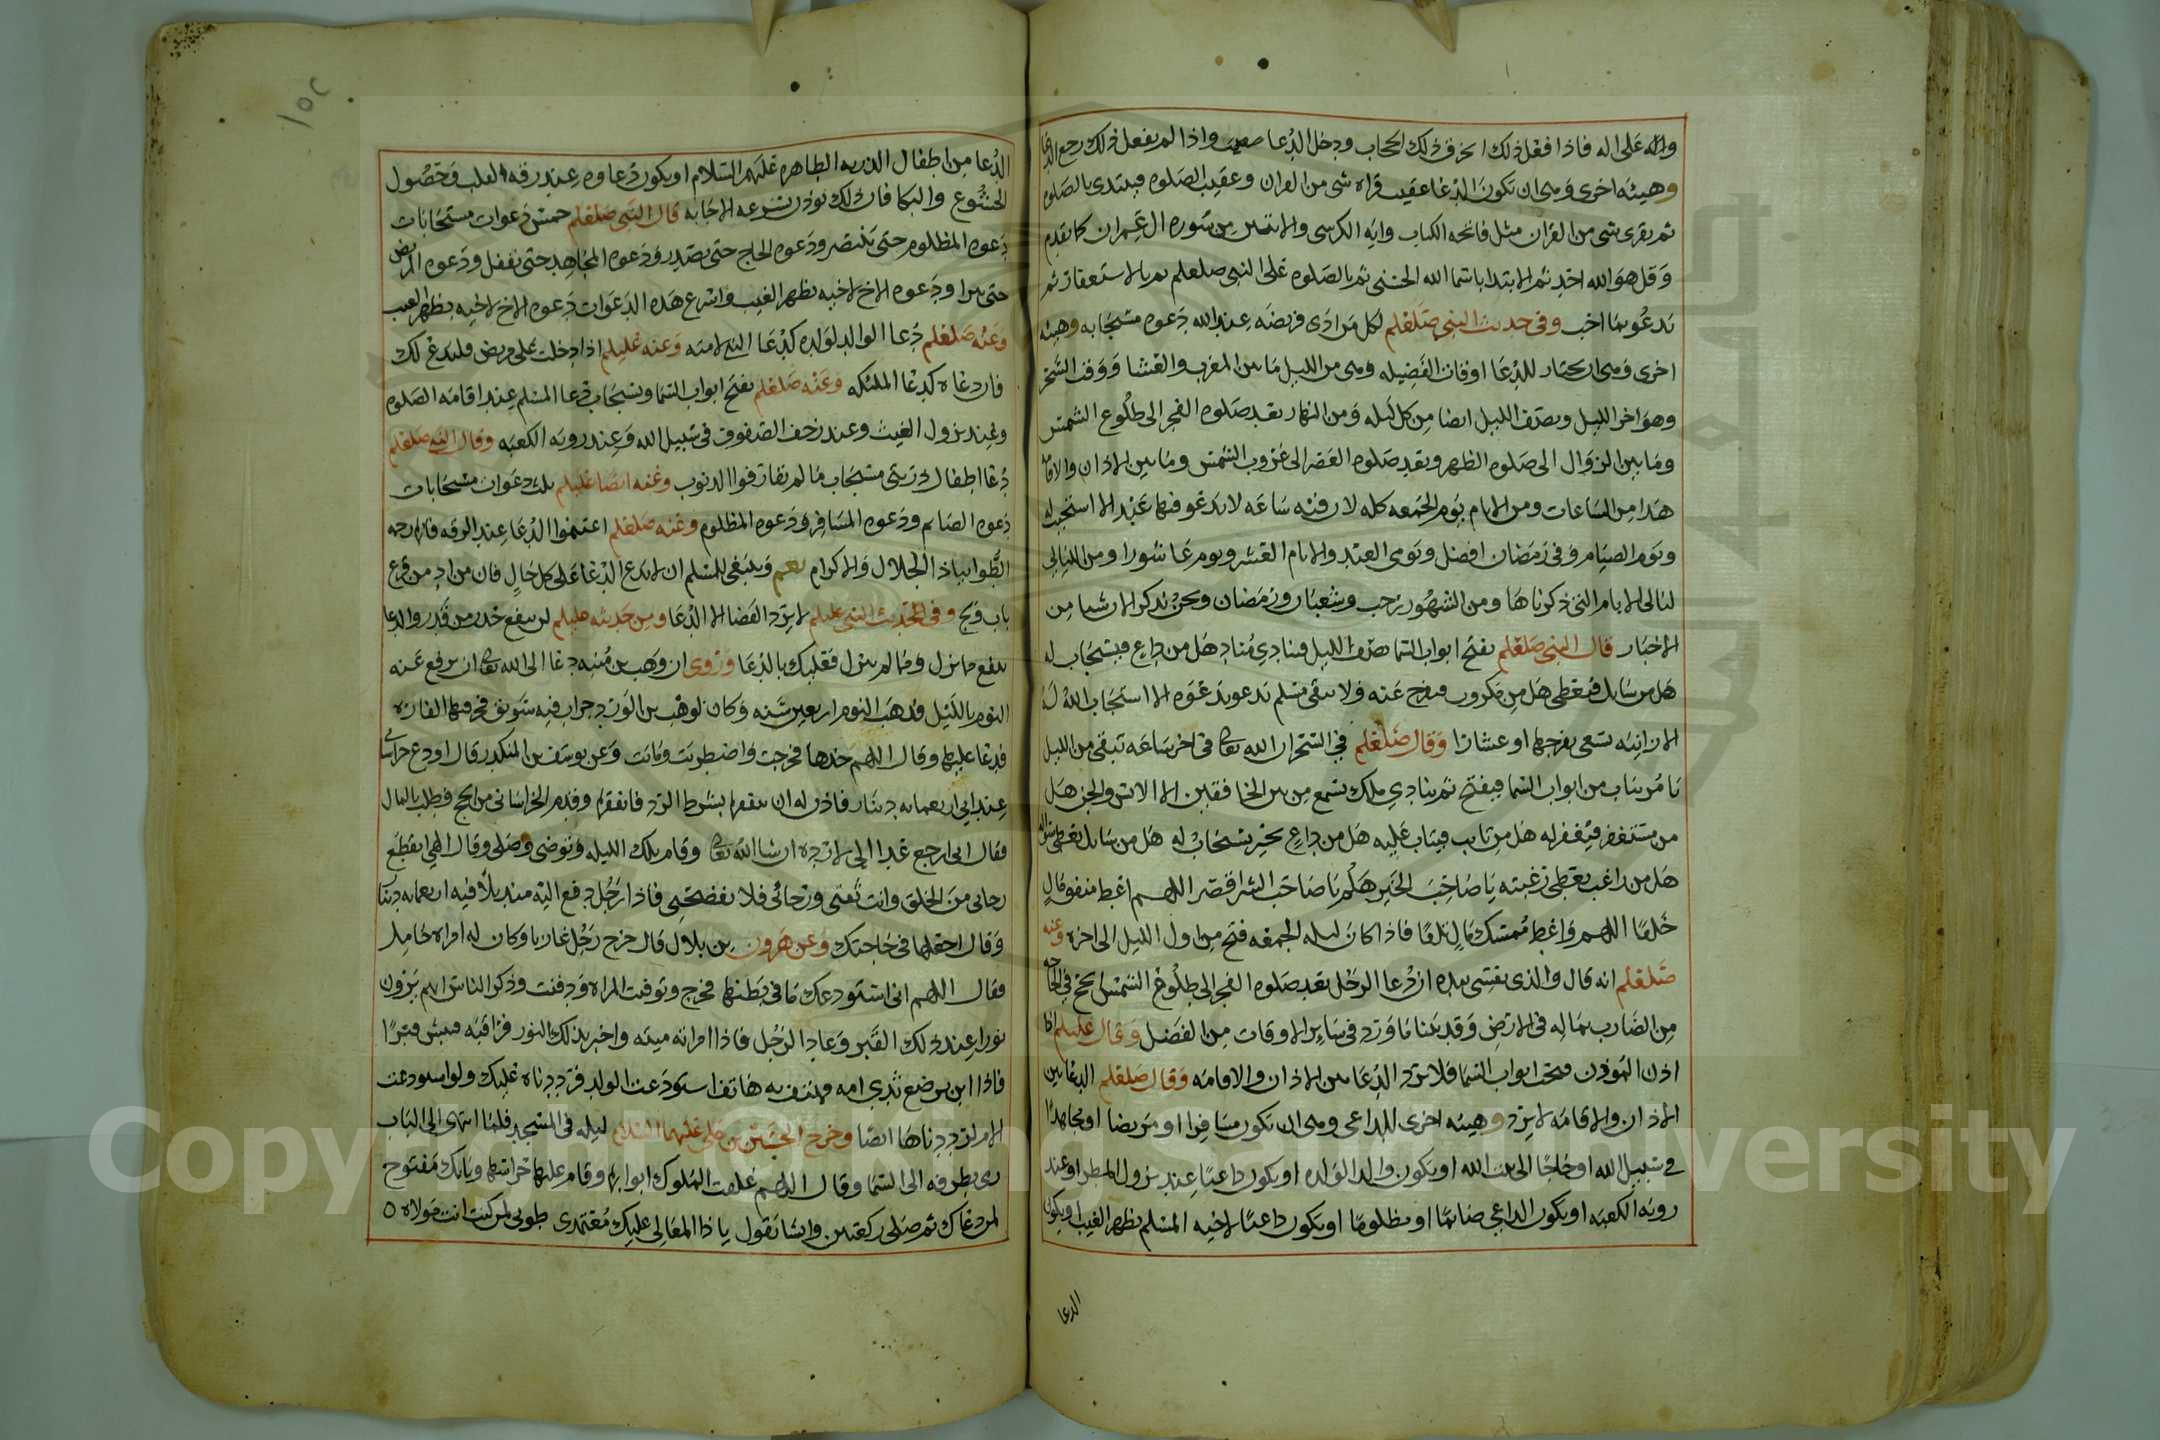 واله على اله فاذا فعل ذلك انخرق ذلك الحجاب ودخل الدعا واذا لم يفعل ذلك رجع الدعا
وهيئه اخرى وهى ان تكون الدعا عقيب قراه شى من القران وعقيب الصلوه فيبتدى بالصلوه
ثم يقرى شى من القران مثل فاتحه الكتاب وايه الكرسى والايتين من سوره ال عمران كما تقدم
وقل هو الله احد ثم الابتدا باسما الله الحسنى ثم بالصلوه على النبى صلعلم ثم بالاستغفار ثم
يدعو بما احب وفى حديث النبى صلعلم لكل من ادى فريضه عند الله دعوه مستجابه وهيئه
اخرى وهى ان يختار للدعا اوقات الفضيله وهى من الليل ما بين المغرب والعشا ووقت السحر
وهو اخر الليل ونصف الليل ايضا من كل ليله ومن النهار بعد صلوه الفجر الى طلوع الشمس
وما بين الزوال الى صلوه الظهر وبعد صلوه العصر الى غروب الشمس وما بين الاذان والاقامه
هذا من الساعات ومن الايام يوم الجمعه كله لان فيه ساعه لا يدعو فيها عبد الا استجيب له
ويوم الصيام وفى رمضان افضل ويومى العيد والايام العشر ويوم عاشورا ومن الليالى
ليالى الايام التى ذكرناها ومن الشهور رجب وشعبان ورمضان ونحن نذكر الان شيا من
الاخبار قال النبى صلعلم يفتح ابواب السما نصف الليل فينادى مناد هل من داع فيستجاب له
هل من سايل فيعطى هل من مكروب فيفرج عنه ولا يبقى مسلم يدعو بدعوه الا استجاب الله له
الا زانيه تسعى بفرجها او عشارا وقال صلعلم فى السحر ان الله تعالى فى اخر ساعه تبقى من الليل
يامر بباب من ابواب السما فيفتح ثم ينادى ملك يسمع من بين الخافقين الا الانس والجن هل
من مستغفر فيغفر له هل من تايب فيتاب عليه هل من داع بخير يستجاب له هل من سايل يعطى سؤله
هل من راغب يعطى رغبته يا صاحب الخير هلم يا صاحب الشر اقصر اللهم اعط منفق مال
خلفا اللهم واعط ممسك مال تلفا فاذا كان ليله الجمعه فتح من اول الليل الى اخره وعنه
صلعلم انه قال والذى نفسى بيده ان دعا الرجل بعد صلوه الفجر الى طلوع الشمس انجح فى الحاجه
من الضارب بماله فى الارض وقد بينا ما ورد فى ساير الاوقات من الفضل وقال عليلم اذا
اذن الموذن فتحت ابواب السما فلا يرد الدعا بين الاذان والاقامه وقال صلعلم الدعا بين
الاذان والاقامه لا يرد وهيئه اخرى للداعى وهى ان تكون مسافرا او مريضا او مجاهدا
فى سبيل الله او حاجا الى بيت الله او يكون والدا لولده او يكون داعيا عند نزول المطر او عند
رويه الكعبه او يكون الداعى صايما او مظلوما او يكون داعيا لاخيه المسلم بظهر الغيب او يكون
الدعا
١٥٢
الدعا من اطفال الذريه الطاهره عليهم السلام او يكون دعاوه عند رقه القلب وحصول
الخشوع والبكا فان ذلك يوذن بسرعه الاجابه قال النبى صلعلم خمس دعوات مستجابات
دعوه المظلوم حتى ينتصر ودعوه الحاج حتى يصدر ودعوه المجاهد حتى يقفل ودعوه المريض
حتى يبرا ودعوه الاخ لاخيه بظهر الغيب واسرع هذه الدعوات دعوه الاخ لاخيه بظهر الغيب
وعنه صلعلم دعا الوالد لولده كدعا النبى لامته وعنه عليلم اذا دخلت على مريض فليدع لك
فان دعاه كدعا الملئكه وعنه صلعلم يفتح ابواب السما ويستجاب دعا المسلم عند اقامه الصلوه
وعند نزول الغيث وعند زحف الصفوف فى سبيل الله وعند رويه الكعبه وقال النبى صلعلم
دعا اطفال ذريتى مستجاب ما لم يقارفوا الذنوب وعنه ايضا عليلم ثلث دعوات مستجابات
دعوه الصايم ودعوه المسافر ودعوه المظلوم وعنه صلعلم اغتنموا الدعا عند الرقه فانه رحمه
الظوا بياذا الجلال والاكرام نعم وينبغى للمسلم ان لا يدع الدعا على كل حال فان من ادمن قرع
باب ولج وفى الحديث النبى عليلم لا يرد القضا الا الدعا ومن حديثه عليلم لن ينفع حذر من قدر والدعا
ينفع مما نزل ومما لم ينزل فعليك بالدعا وروى ان وهب بن منبه دعا الى الله تعالى ان يرفع عنه
النوم بالليل فذهب النوم اربعين سنه وكان لوهب بن الورد جراب فيه سويق فخرقتها الفاره
فدعا عليها وقال اللهم خذها فخرجت واضطربت وماتت وعن يوسف بن المنكدر قال اودع خراسانى
عند ابى اربعمايه دينار فاذن له ان ينفقها بشرط الرد فانفقها وقدم الخراسانى من الحج فطلب المال
فقال ابى ارجع غدا الى لارده ان شا الله تعالى وقام تلك الليله وتوضى وصلى وقال الهى انقطع
رجائى من الخلق وانت ثقتى ورجائى فلا تفضحنى فاذا رجل دفع اليه منديلا فيه اربعمايه دينار
وقال اجعلها فى حاجتك وعن هرون بن بلال قال خرج رجل غازيا وكان له امراه حامل
فقال اللهم انى استودعك ما فى بطنها فخرج وتوفيت المراه ودفنت وذكر الناس انهم يرون
نورا عند ذلك القبر وعاد الرجل فاذا امراته ميته واخبر بذلك النور فراقبه فنبش قبرا
فاذا ابن يرضع ثدى امه فهتف به هاتف استودعت الولد فرددناه عليك ولو استودعت
الام لرددناها ايضا وخرج الحسين بن على عليهما السلام ليله فى المسجد فلما انتهى الى الباب
رمى بطرفه الى السما وقال اللهم غلقت الملوك ابوابها وقام عليها حراسها وبابك مفتوح
لمن دعاك ثم صلى ركعتين وانشا يقول يا ذا المعالى عليك معتمدى طوبى لمن كنت انت مولاه
Copyright © King Saud University